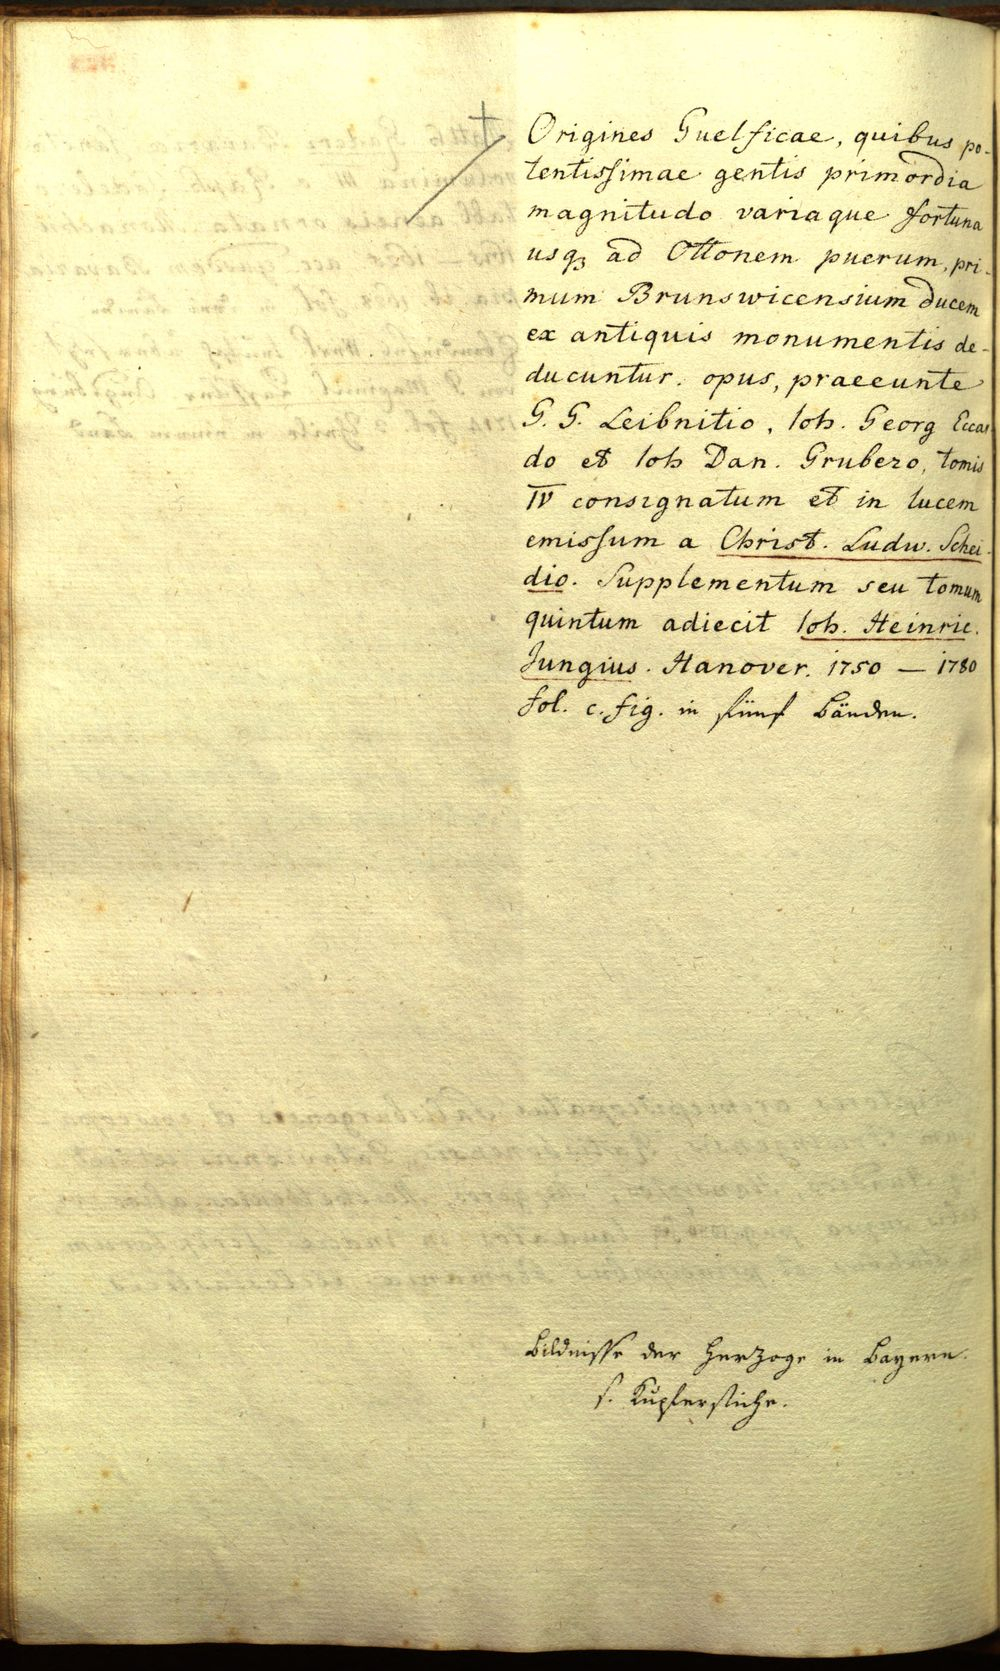 Origines Guelficae, quibus po-
tentissimae gentis primordia
magnitudo variaque fortuna
usq3 ad Ottonem puerum, pri-
mum Brunswicensium Ducem
ex antiquis monumentis de-
ducuntur. opus, praeeunte
G. G. Leibnitio, Ioh. Georg Eccar
do et Ioh Dan. Grubero, tomis
IV consignatum et in lucem
emissum a Christ. Ludw. Schei-
dio. Supplementum seu tomum
quintum adiecit Ioh. Heinric.
Jungius. Hanover. 1750 — 1780
fol. c. fig. in fünf Bänden.
Bildnisse der Herzoge in Bayern.
s. Kupferstiche.